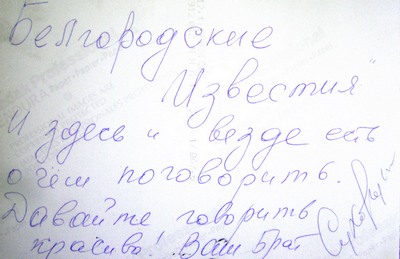 Белгородские
Известия"
И здесь и везде есть
о чём поговорить.
Давайте говорить
красиво! Ваш Брат